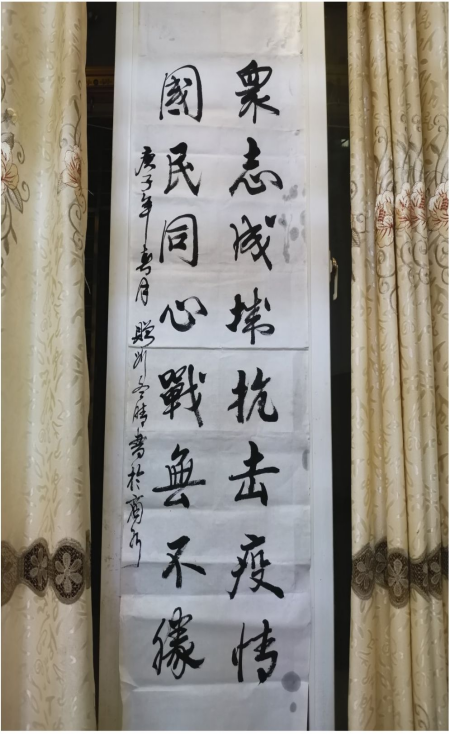 眾志成城抗击疫情
國民同心戰無不勝
庚子年 月 書於商水